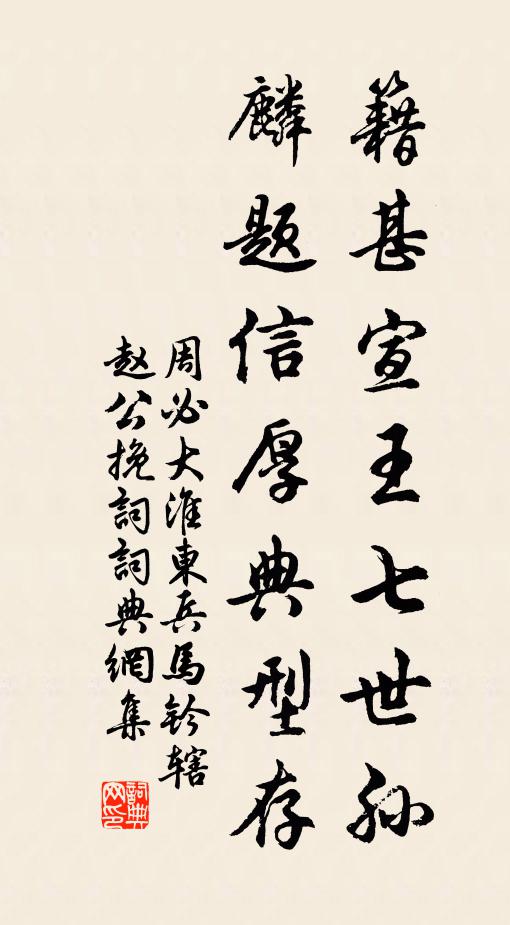 籍甚宣王七世孙
麟题信厚典型存
周必大淮東兵馬钤辖
赵公挽詞詞典網集
詞典网印